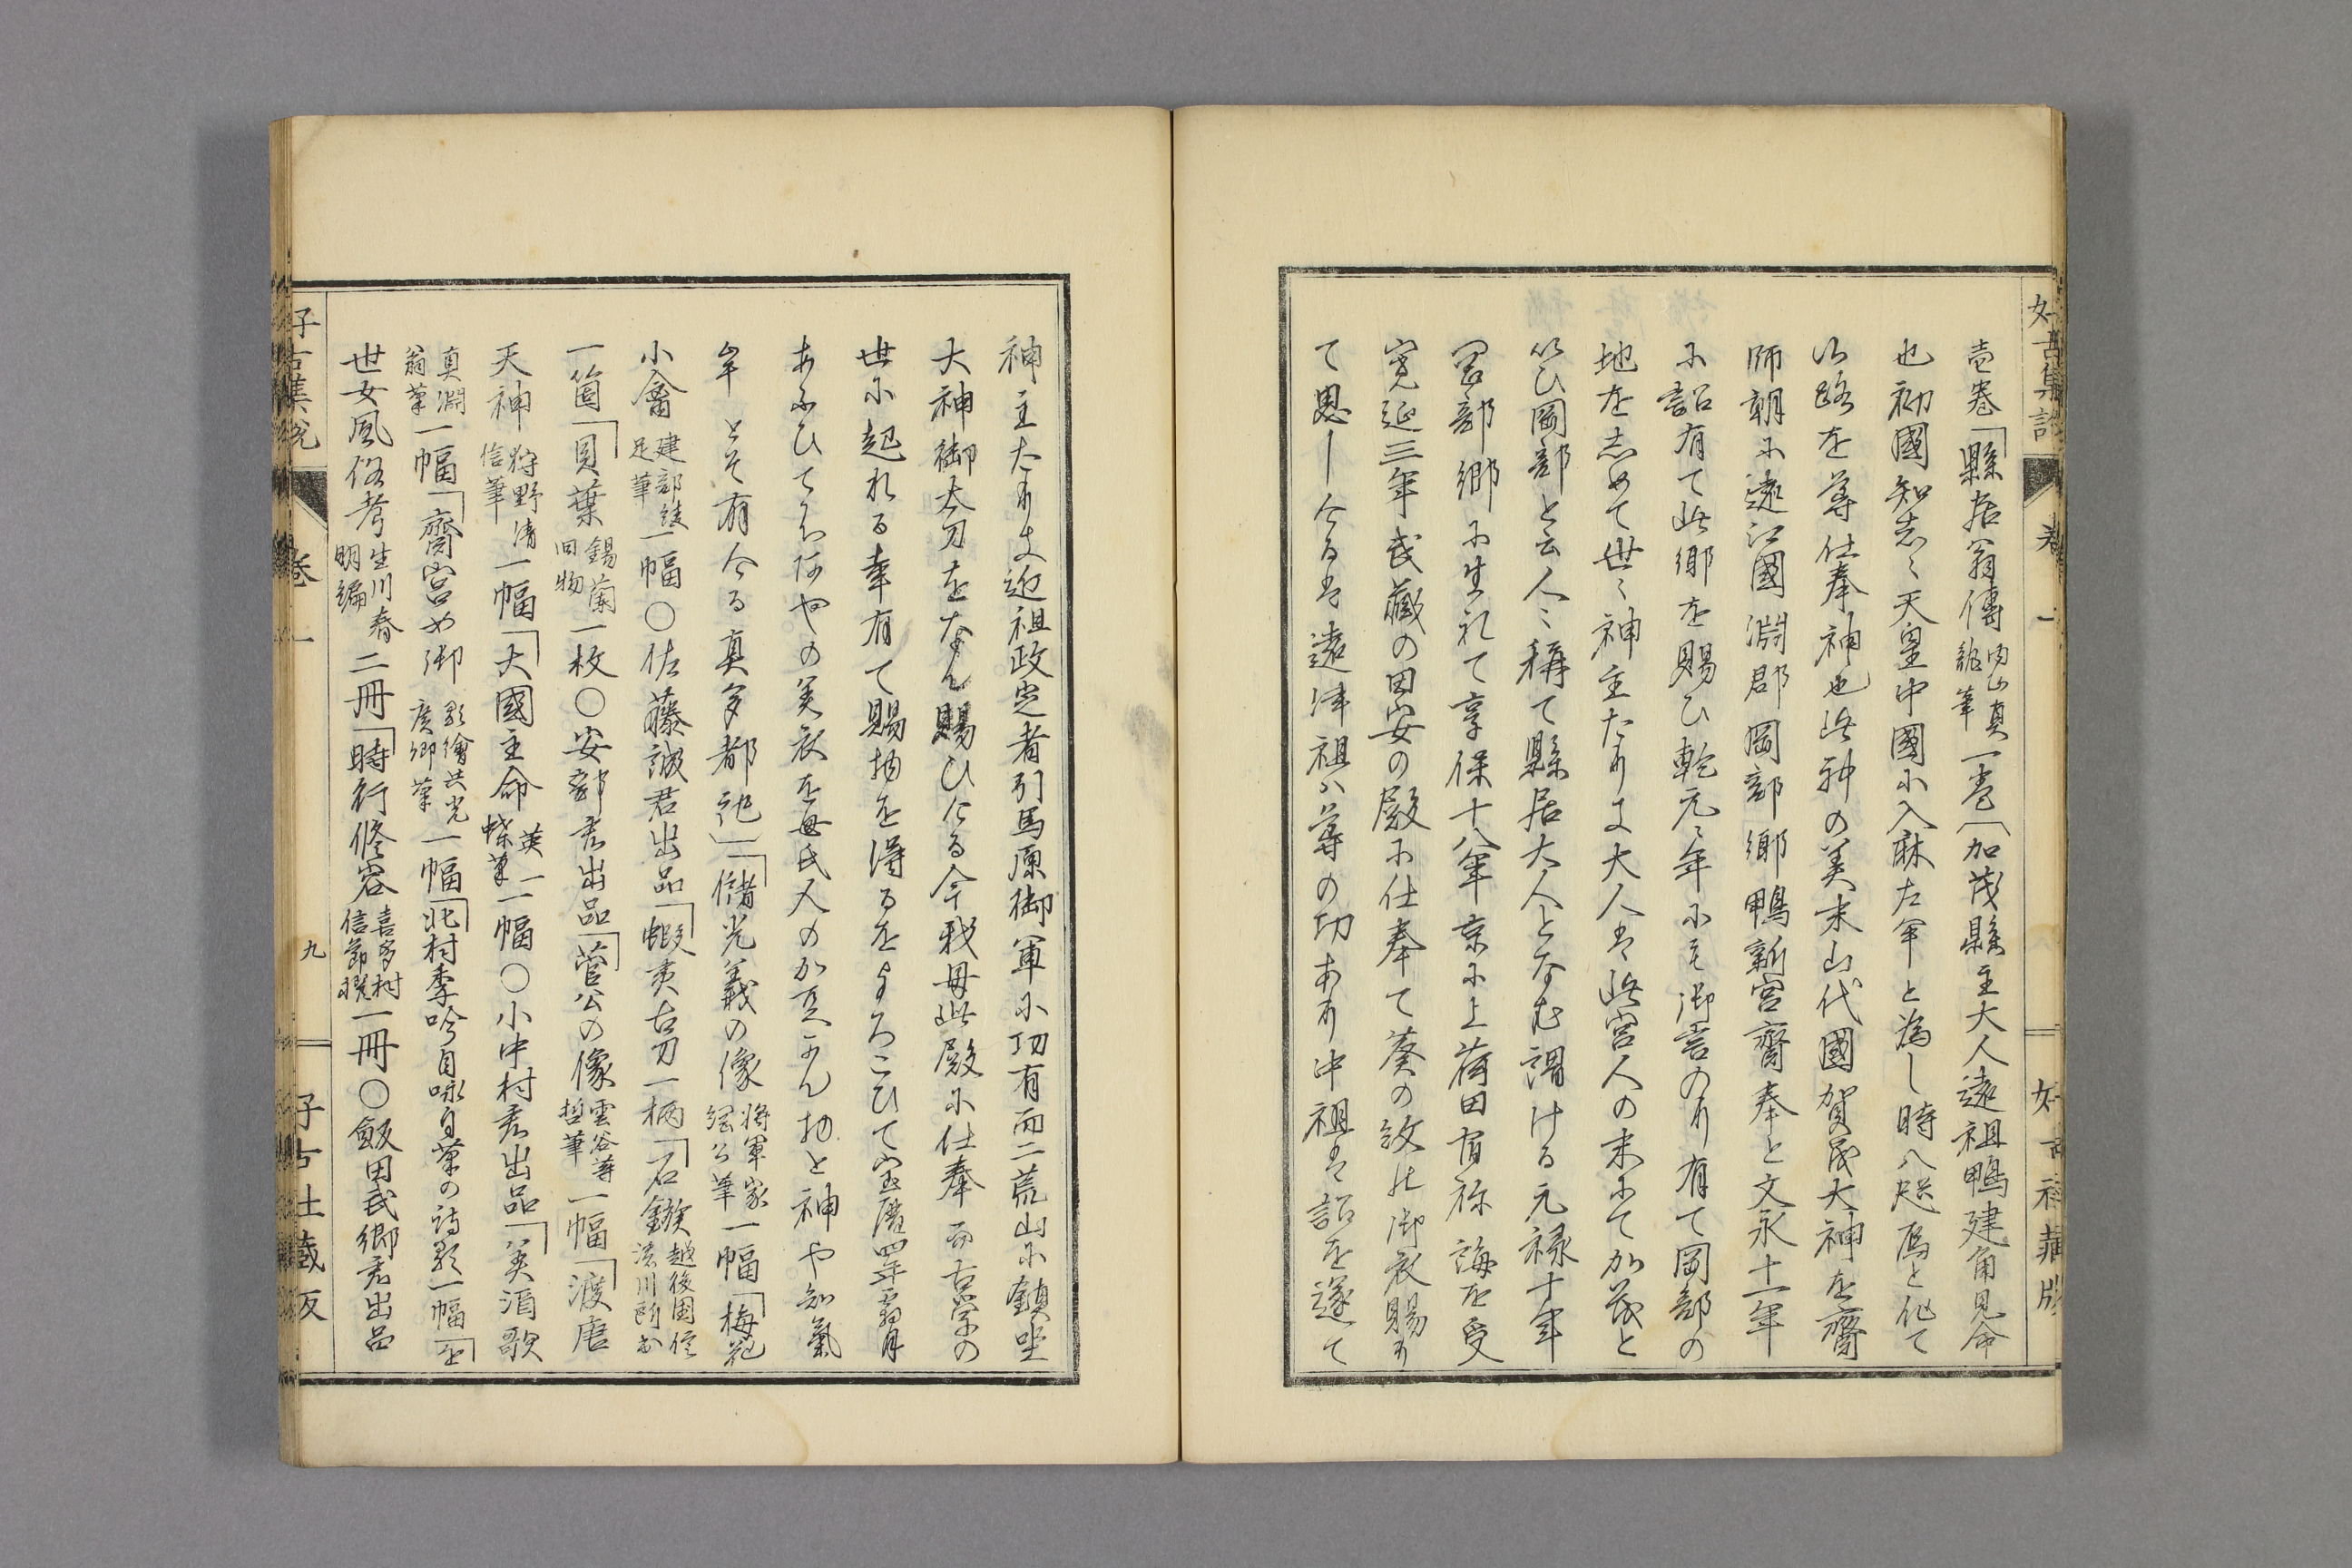 好古集説 巻一 好古社藏版
壱巻「縣居翁傳 内山真龍筆 一巻〔加茂縣主大人遠祖鴨建角見命
也初國知志ゝ天皇中國尓入麻左牟と為し時八咫烏と化て
御路を導仕奉神也此神の美末山代國賀茂大神を齋
師朝尓遠江國淵郡岡部郷鴨新宮齋奉と文永十一年
尓詔有て此郷を賜ひ乾元ゝ年尓も御言のり有て岡部の
地を志めて世ゝ神主たり故大人は此宮人の末尓て加茂と
いひ岡部と云人ゝ稱て縣居大人となむ謂ける元禄十年
岡部郷尓生れて享保十八年京尓上荷田宿祢誨を受
寛延三年武藏の田安の殿尓仕奉て葵の紋の御衣賜り
て思しけるは遠津祖ハ導の功あり中祖は詔を遂て
神主たり又近祖政定者引馬原御軍尓功有而二荒山尓鎮坐
大神御太刀をなん賜ひける今我毋此殿尓仕奉而古学の
世尓起れる幸有て賜物を得るをよろこひて宝暦四年霜月
あふひてふあやの美衣を毋氏人のかつかん物と神や知氣
牟 とそ有ける真多都記〕「儲光義の像 将軍家綱公筆 一幅「梅花
小禽 建部綾足筆 一幅〇佐藤誠君出品「蝦夷古刀一柄「石鏃 越後国信濃川所出
一箇「貝葉 錫蘭回物 一枚〇安部君出品「菅公の像 雲谷等哲筆 一幅「渡唐
天神 狩野清信筆 一幅「大國主命 英一蝶筆 一幅〇小中村君出品「美濱歌
真淵翁筆 一幅「齋宮女御 影繪共光廣卿筆 一幅「北村季吟自咏自筆の詩歌一幅「近
世女風俗考 生川春明編 二冊「時行修容 喜多村信節撰 一冊〇飯田武郷君出品
好古集説 巻一 九 好古社藏版